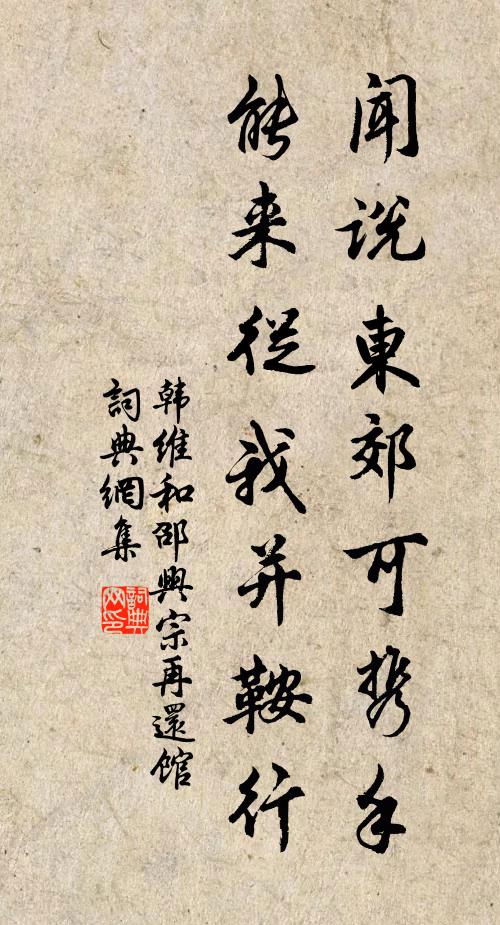 闻说東郊可携手
能来從我并鞍行
韩維和邵興宗再還館
詞典網集
詞典网印